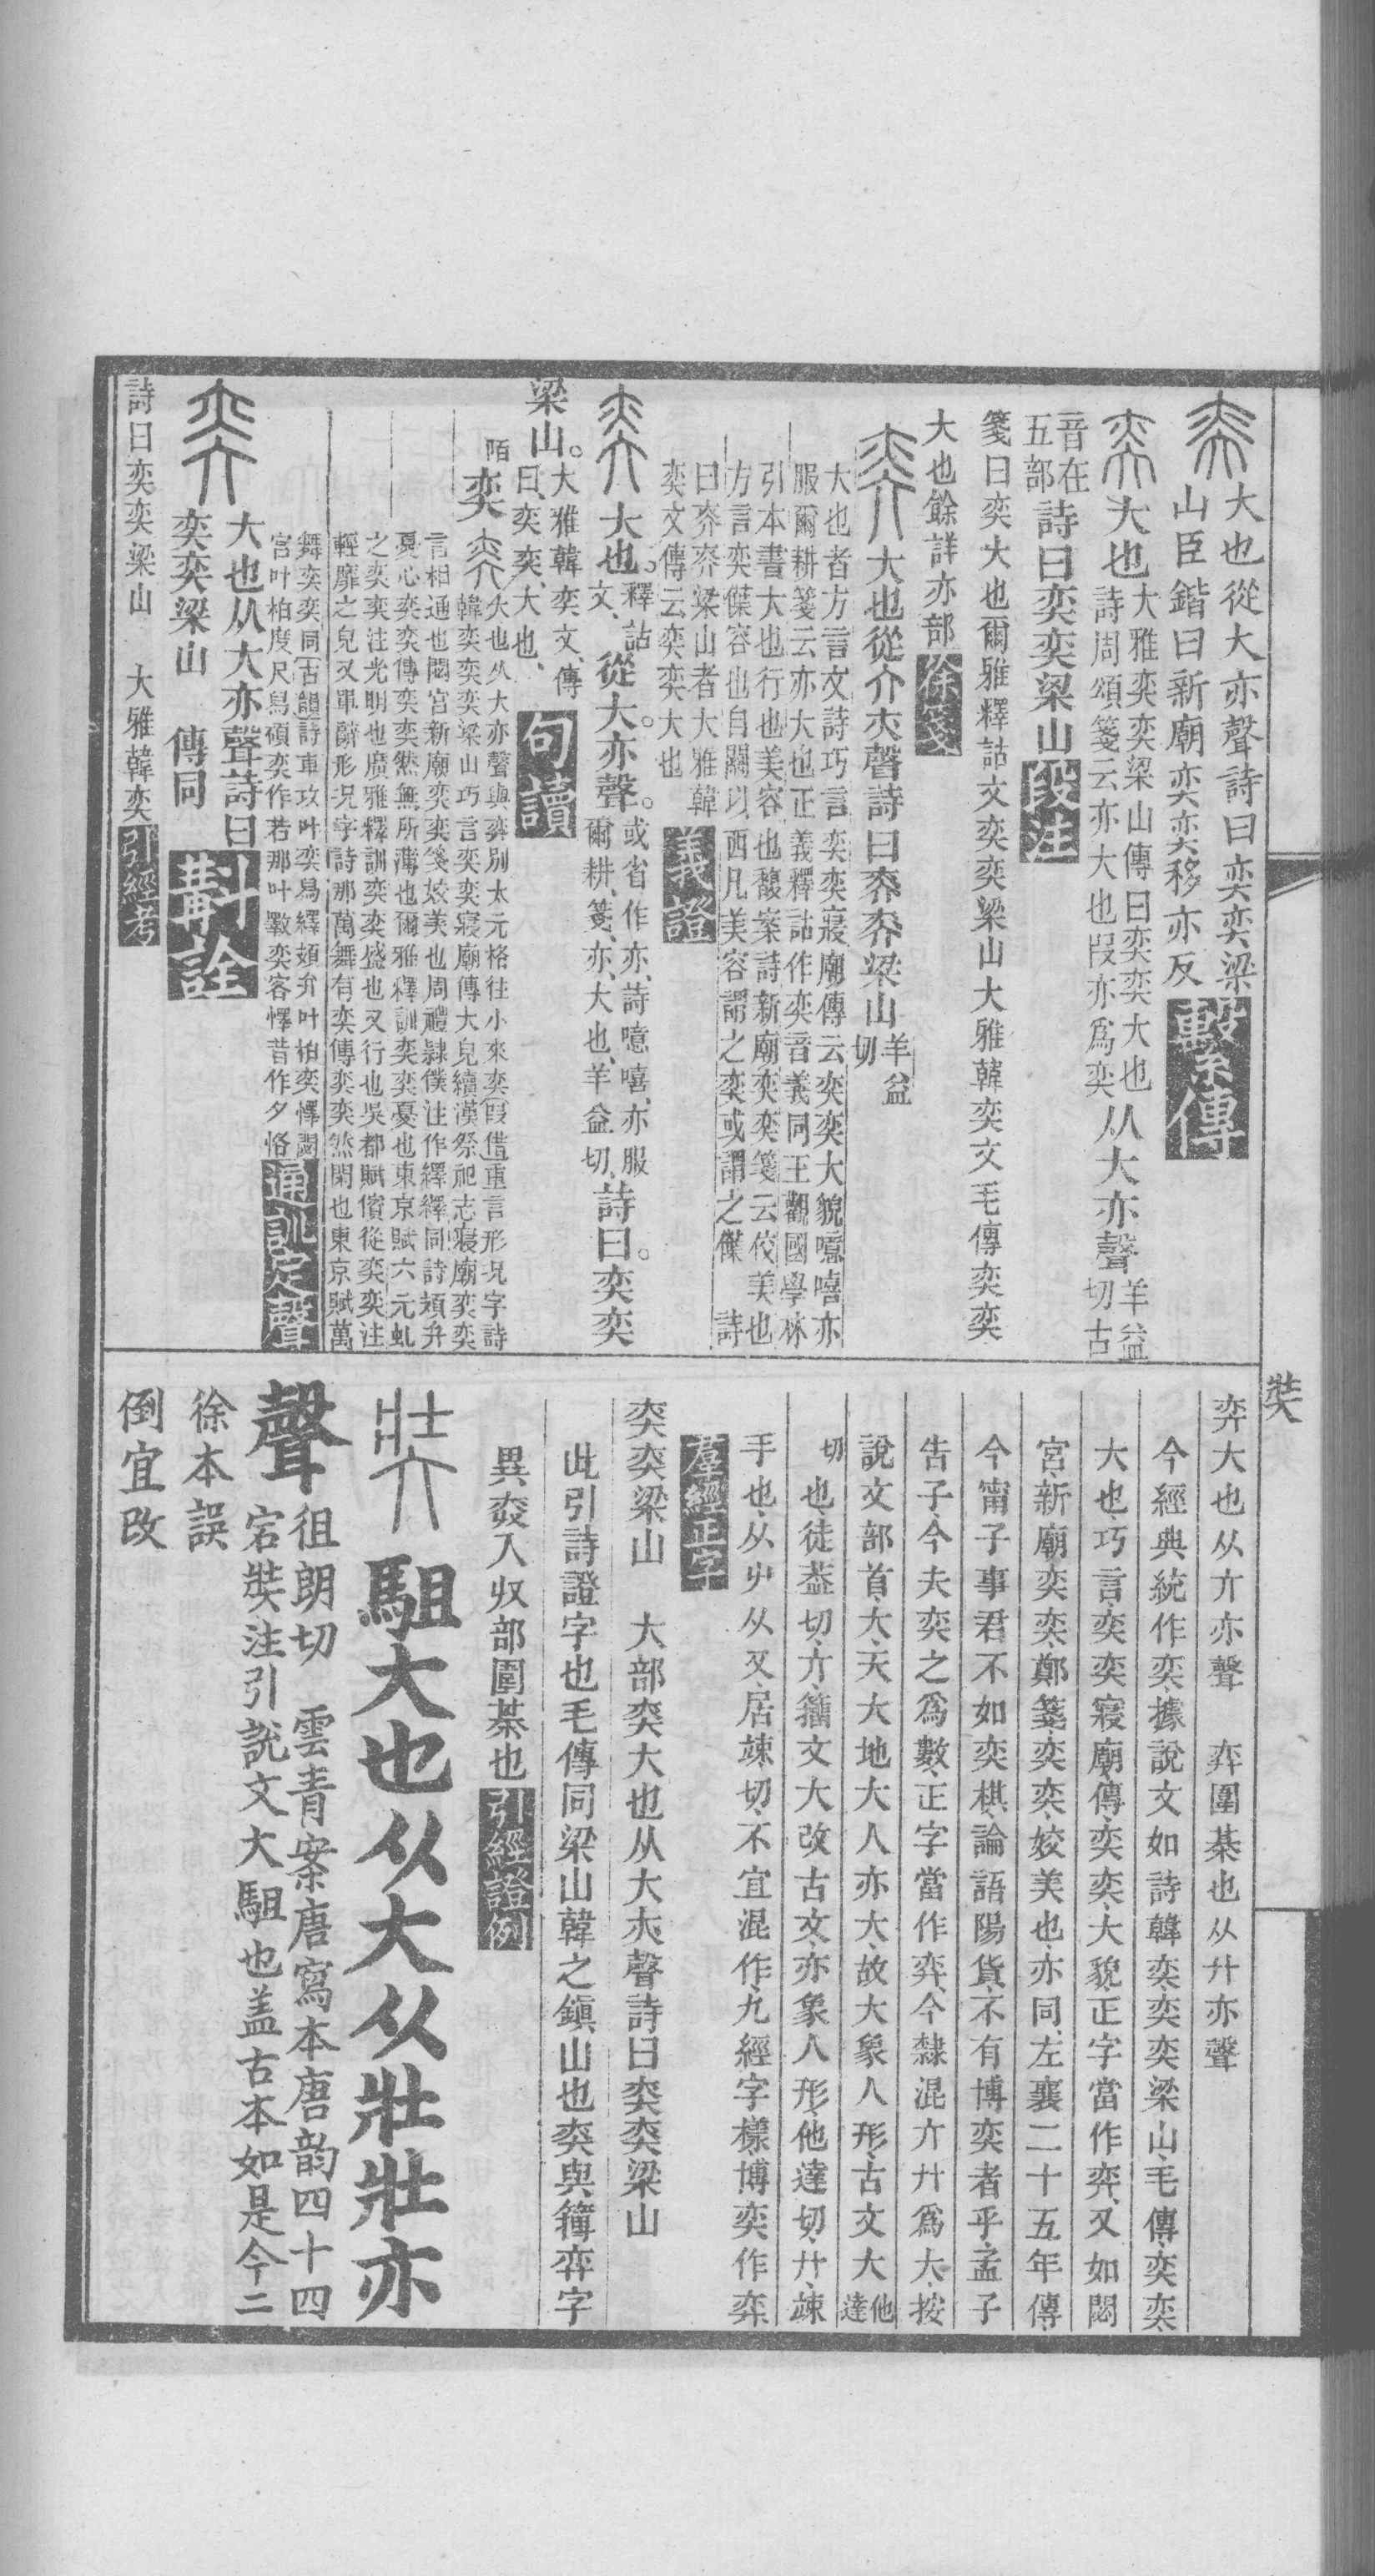 大也從大亦聲詩曰奕奕梁
山臣鍇曰新廟奕奕移亦反 繫傳
大也 大雅奕奕梁山傳曰奕奕大也
詩周頌箋云亦大也叚亦爲奕 从大亦聲 羊益
切古
音在
五部 詩曰奕奕梁山 段注
箋曰奕大也爾雅釋詁文奕奕梁山大雅韓奕文毛傳奕奕
大也餘詳亦部 徐箋
大也從介亣聲詩曰奕奕梁山 羊益
切
大也者方言文詩巧言奕奕寢廟傳云奕奕大貌噫嘻亦
服爾耕箋云亦大也正義釋詁作奕音義同王觀國學林
引本書大也行也美容也馥案詩新廟奕奕箋云佼美也
方言奕僷容也自關以西凡美容謂之奕或謂之僷 詩
曰奕奕梁山者大雅韓
奕文傳云奕奕大也 義證
大也 釋詁
文 從大亦聲 或省作亦詩噫嘻亦服
爾耕箋亦大也羊益切 詩曰奕奕
梁山 大雅韓奕文傳
曰奕奕大也 句讀
陌
奕 大也从大亦聲與弈別太元格往小來奕叚借重言形況字詩
韓奕奕奕梁山巧言奕奕寢廟傳大皃續漢祭祀志寢廟奕奕
言相通也閟宮新廟奕奕箋姣美也周禮隸僕注作繹繹同詩頍弁
憂心奕奕傳奕奕然無所薄也爾雅釋訓奕奕憂也東京賦六元虬
之奕奕注光明也廣雅釋訓奕奕盛也又行也吳都賦儐從奕奕注
輕靡之皃又單辭形況字詩那萬舞有奕傳奕奕然閑也東京賦萬
舞奕奕同 古韻 詩車攻叶奕舄繹頍弁叶柏奕懌閟
宮叶柏度尺舄碩奕作若那叶斁奕客懌昔作夕恪 通訓定聲
大也从大亦聲詩曰
奕奕梁山 傳同 斠詮
詩曰奕奕梁山 大雅韓奕 引經考
弈大也从亣亦聲 弈圍棊也从廾亦聲
今經典統作奕據說文如詩韓奕奕奕梁山毛傳奕奕
大也巧言奕奕寢廟傳奕奕大貌正字當作弈又如閟
宮新廟奕奕鄭箋奕奕姣美也亦同左襄二十五年傳
今甯子事君不如奕棋論語陽貨不有博奕者乎孟子
告子今夫奕之爲數正字當作弈今隸混亣廾爲大按
說文部首大天大地大人亦大故大象人形古文大 他
達
切 也徒葢切亣籀文大改古文亦象人形他達切廾竦
手也从从又居竦切不宜混作九經字樣博奕作弈
羣經正字
奕奕梁山 大部奕大也从大亣聲詩曰奕奕梁山
此引詩證字也毛傳同梁山韓之鎮山也奕與簙弈字
異奕入収部圍棊也 引經證例
駔大也从大从壯壯亦
聲 徂朗切 雲青案唐寫本唐韵四十四
宕奘注引說文大駔也盖古本如是今二
徐本誤
倒宜改
奘